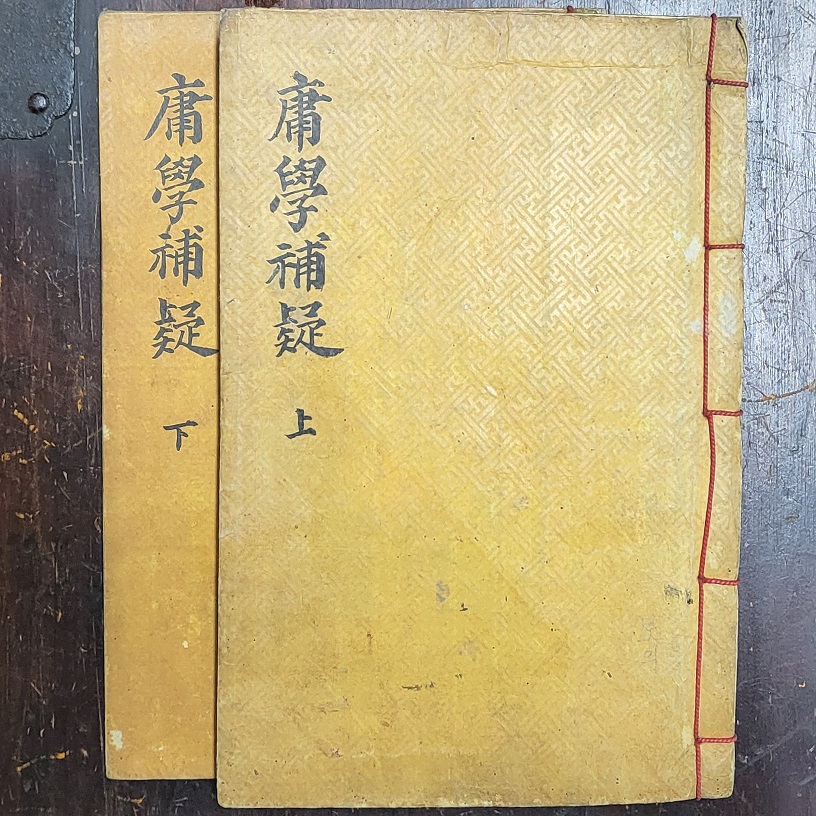 庸學補疑
上
庸學補疑
下